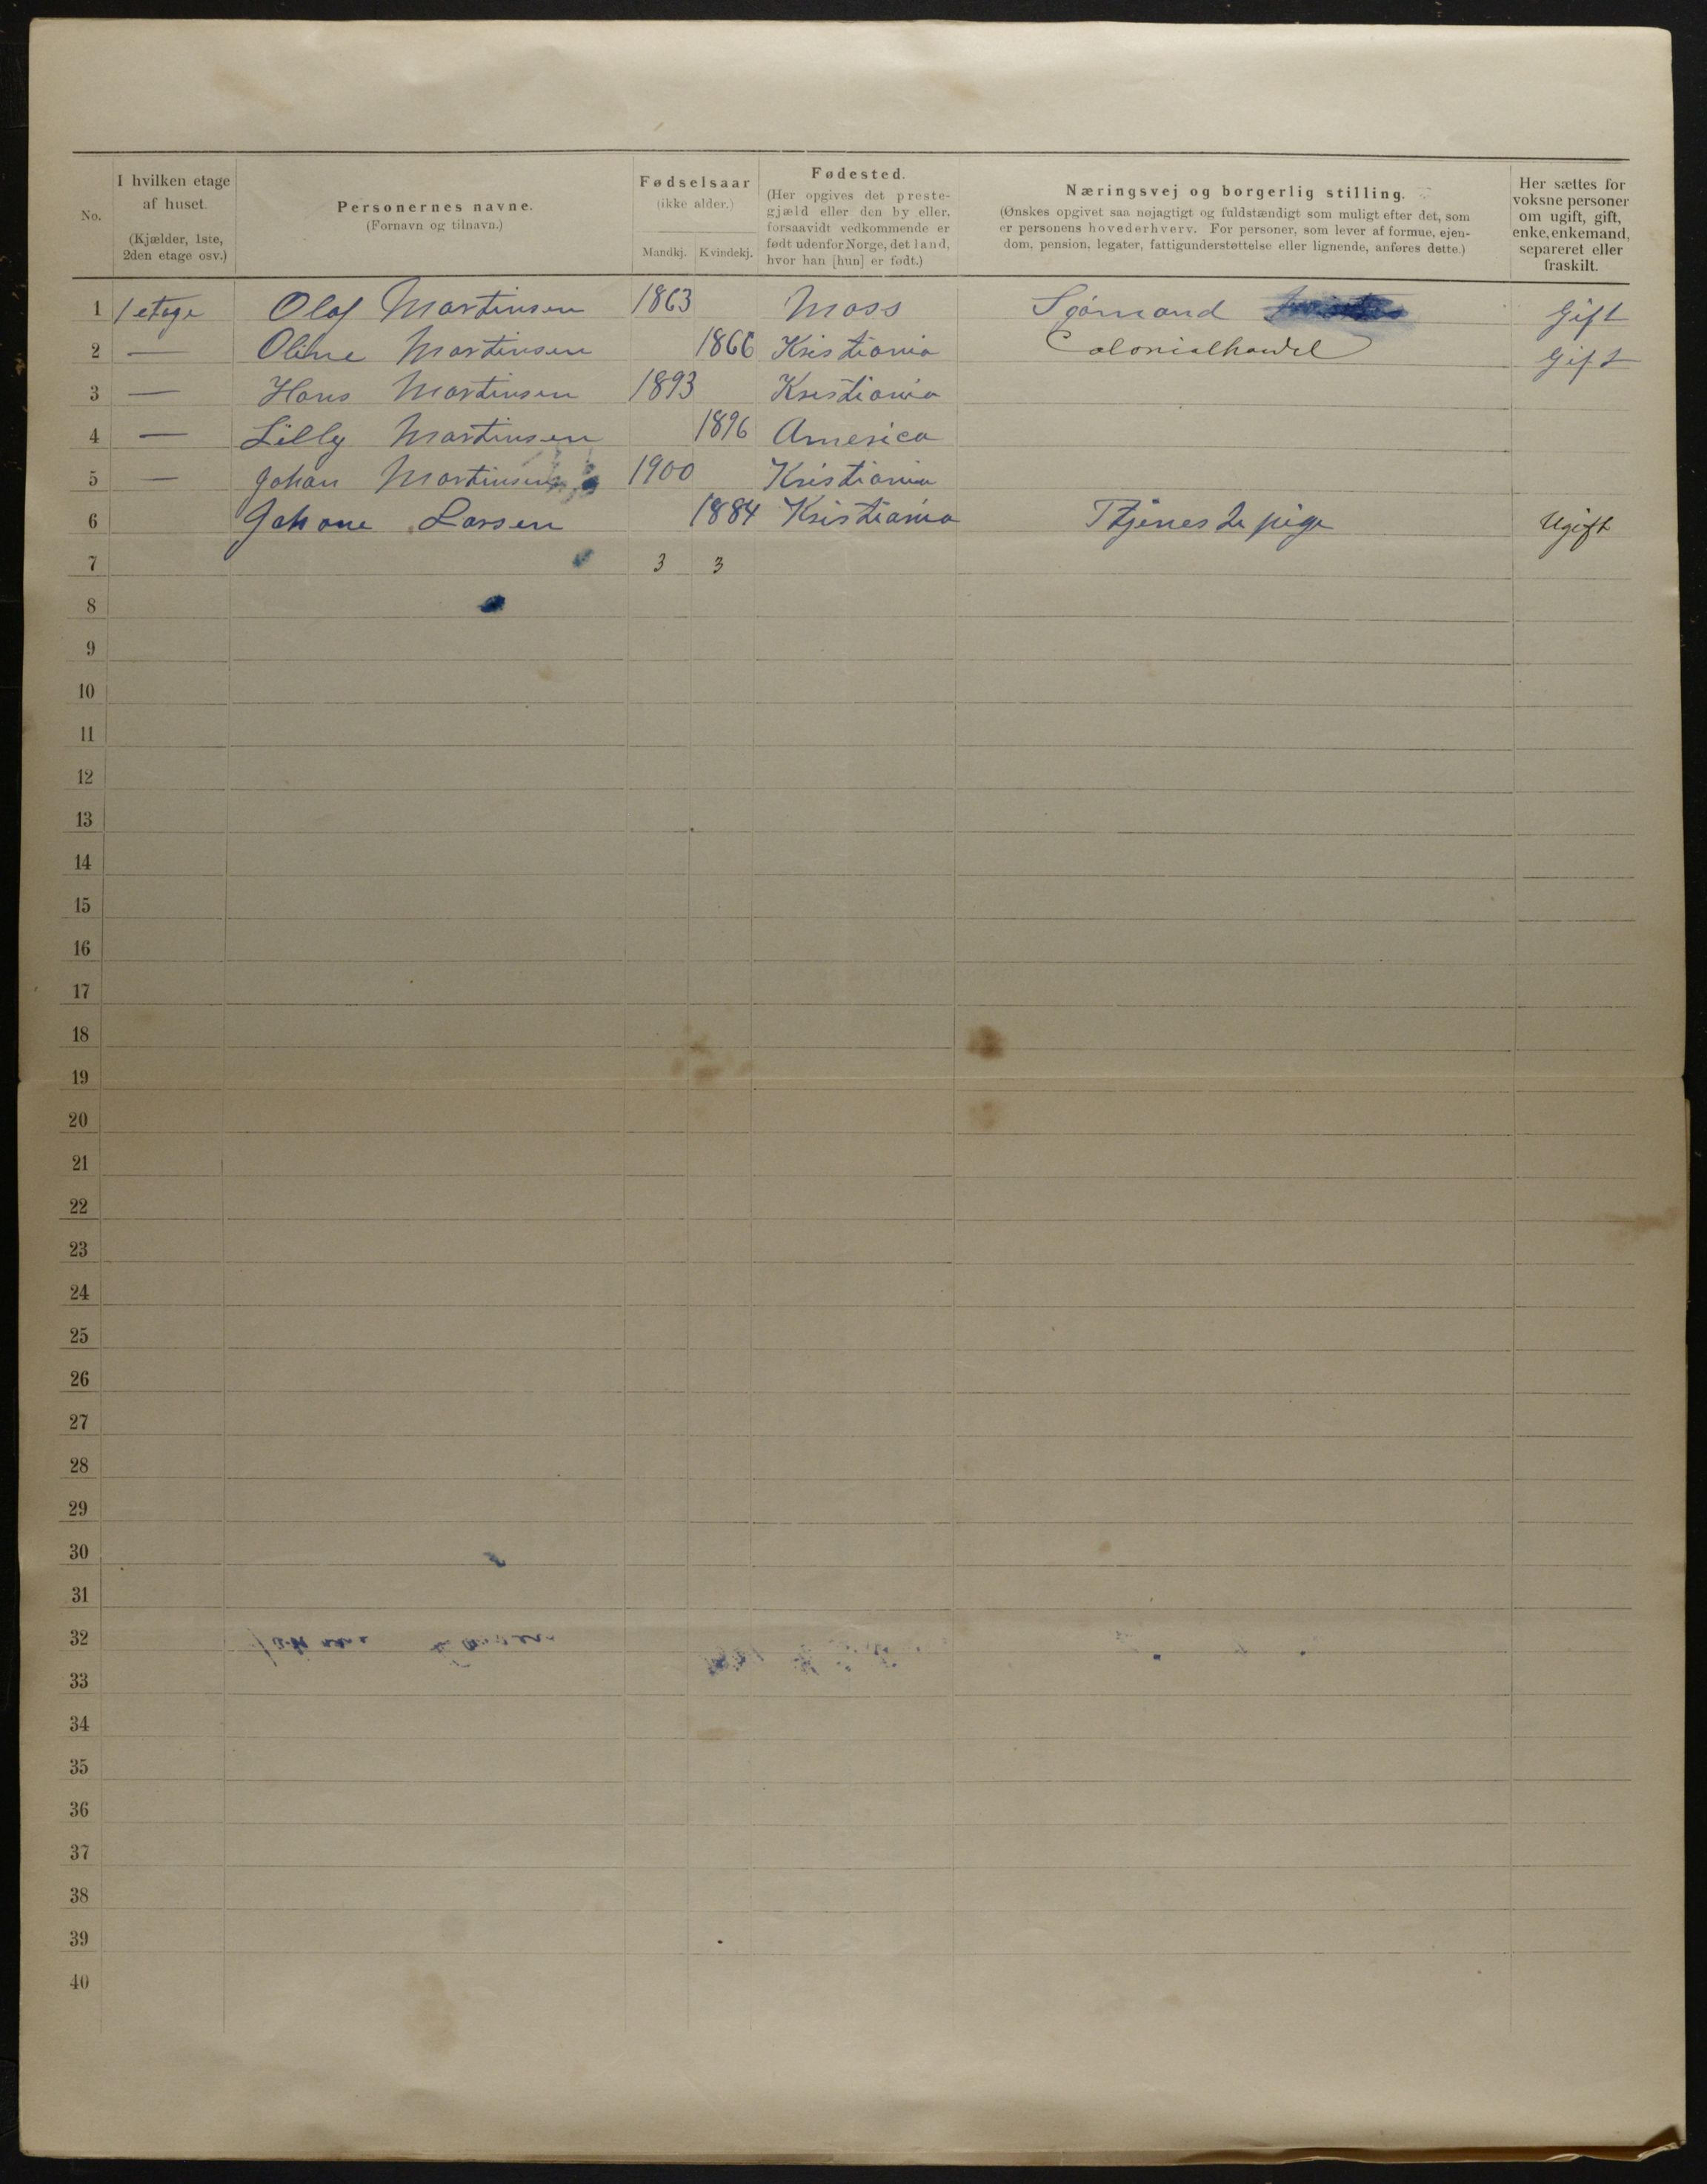 No.
I hvilken etage
af huset.
(Kjælder, 1ste,
2den etage osv.)
Personernes navne.
(Fornavn og tilnavn.)
Fødselsaar
(ikke alder.)
Mandkj. Kvindekj.
Fødested.
(Her opgives det preste-
gjæld eller den by eller,
forsaavidt vedkommende er
født udenfor Norge, det land,
hvor han [hun] er født.)
Næringsvej og borgerlig stilling.
(Ønskes opgivet saa nøjagtigt og fuldstændigt som muligt efter det, som
er personens hovederhverv. For personer, som lever af formue, ejen-
dom, pension, legater, fattigunderstøttelse eller lignende, anføres dette.)
Her sættes for
voksne personer
om ugift, gift,
enke, enkemand,
separeret eller
fraskilt.
1 1 etage Olaf Martinsen 1863 Moss Sjømand Gift
2 — Oline Martinsen 1866 Kristiania Colonialhandel Gift
3 — Hans Martinsen 1893 Kristiania
4 — Lilly Martinsen 1896 America
5 — Johan Martinsen 1900 Kristiania
6 Johane Larsen 1884 Kristiania Tjenestepige Ugift
7 3 3
8
9
10
11
12
13
14
15
16
17
18
19
20
21
22
23
24
25
26
27
28
29
30
31
32
33
34
35
36
37
38
39
40